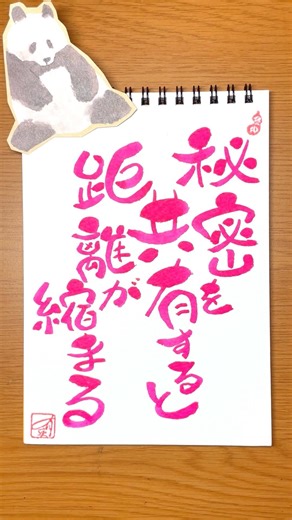 秘密を
共有すると
距離が
縮まる